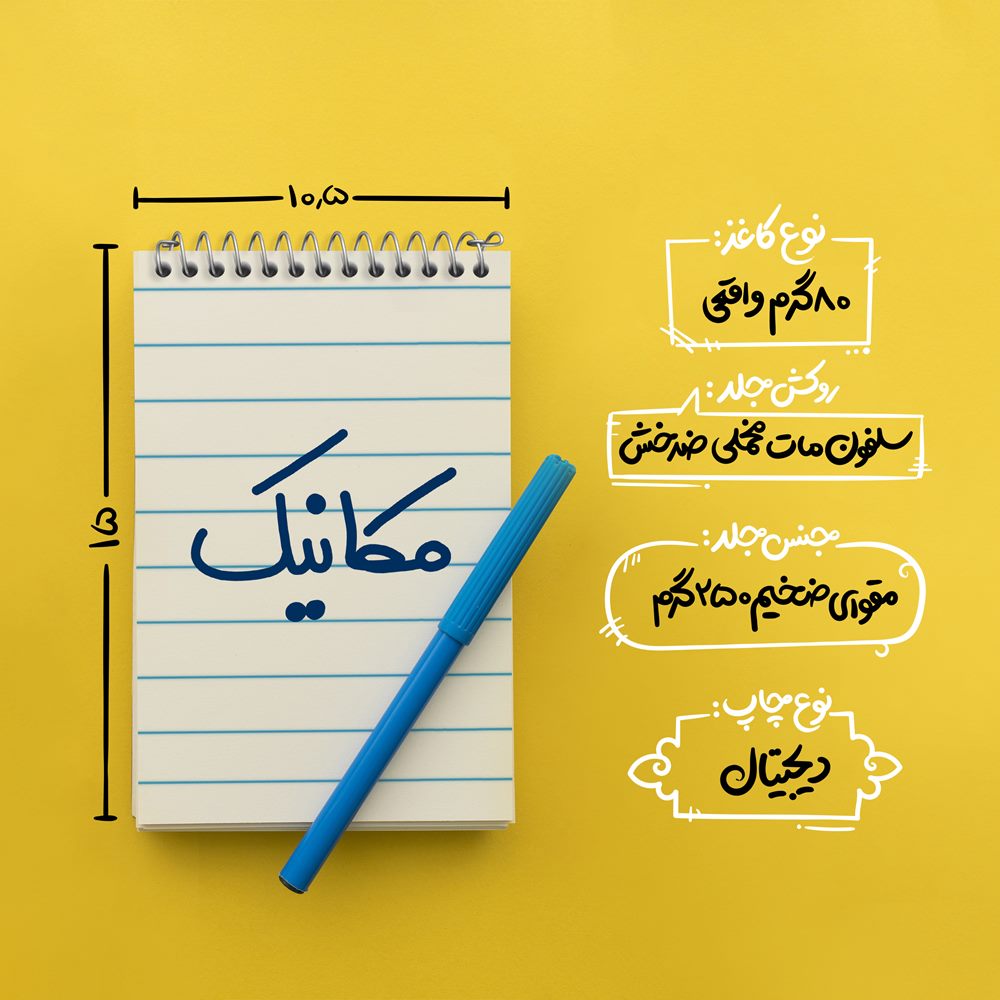 ۱۰٫۵
۱۵
مکانیک
نوع کاغذ:
۸۰ گرم واقعی
روکش جلد:
سلفون مات مخملی ضدخش
جنس جلد:
مقوای ضخیم ۲۵۰ گرم
نوع چاپ:
دیجیتال